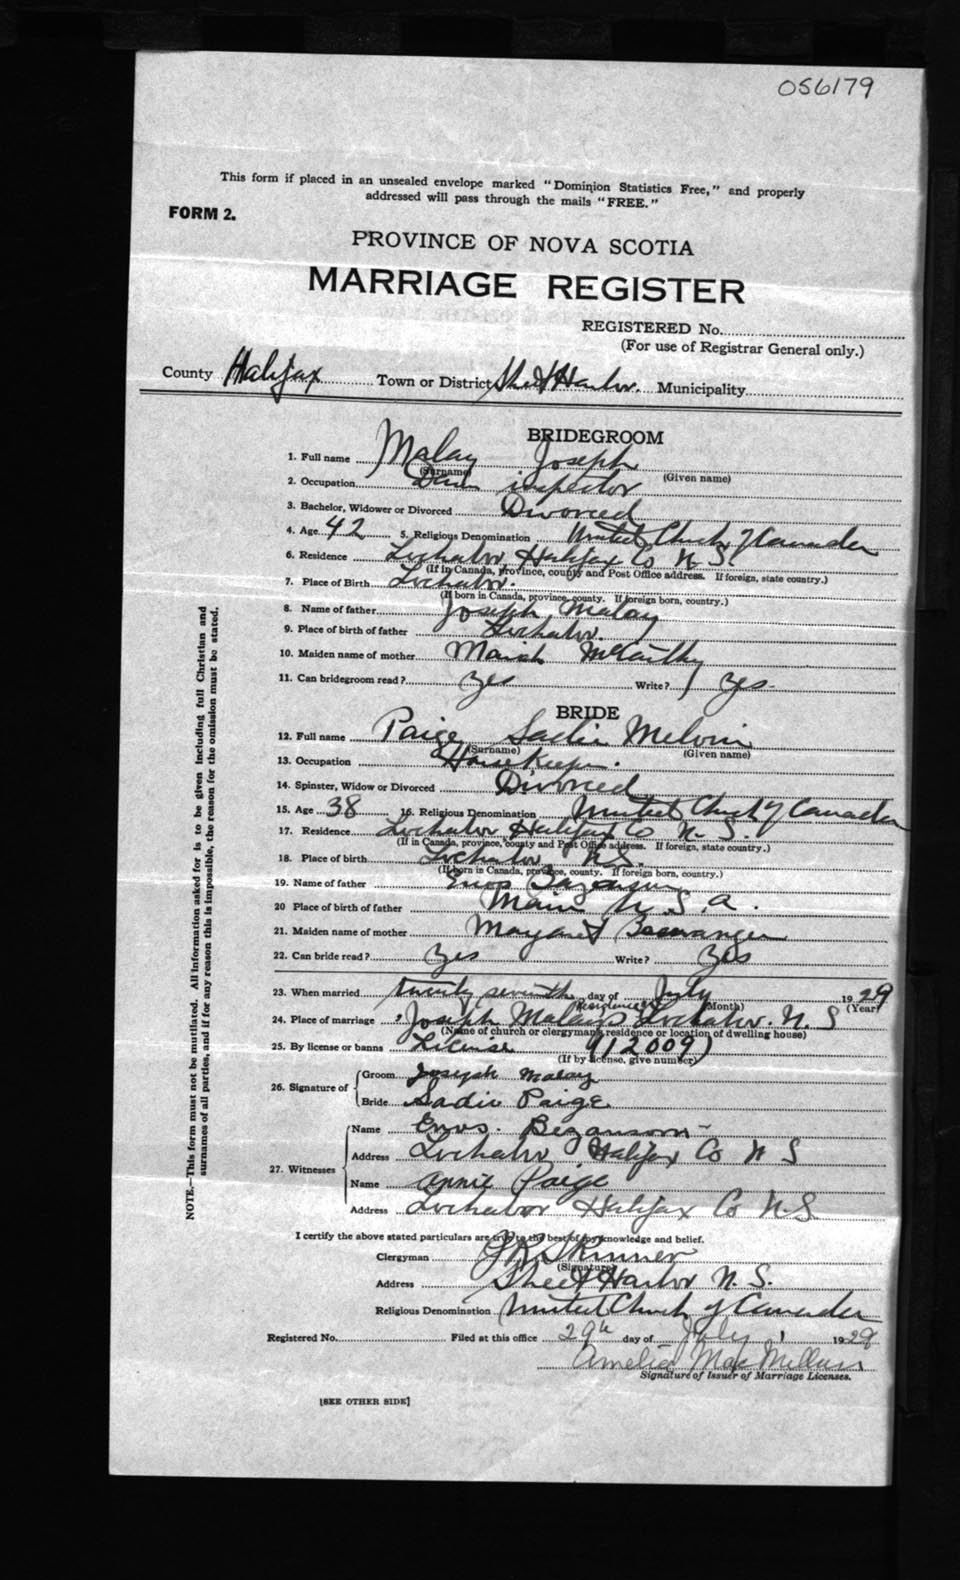 056179
This form if placed in an unsealed envelope marked "Dominion Statistics Free," and properly
addressed will pass through the mails "FREE."
FORM 2.
PROVINCE OF NOVA SCOTIA
MARRIAGE REGISTER
REGISTERED No.
(For use of Registrar General only.)
County Halifax Town or District Sheet Harbor. Municipality
BRIDEGROOM
1. Full name Malay Joseph
(Surname) (Given name)
2. Occupation Dam inspector
3. Bachelor, Widower or Divorced Divorced
4. Age 42 5. Religious Denomination United Church of Canada
6. Residence Lochabor Halifax Co N.S.
(If in Canada, province, county and Post Office address. If foreign, state country.)
7. Place of Birth Lochabor.
(If born in Canada, province, county. If foreign born, country.)
8. Name of father Joseph Malay
9. Place of birth of father Lochabor.
10. Maiden name of mother Mariah McCarthy
11. Can bridegroom read? yes Write? yes.
BRIDE
12. Full name Paige Sadie Melvin
(Surname) (Given name)
13. Occupation Housekeeper.
14. Spinster, Widow or Divorced Divorced
15. Age 38 16. Religious Denomination United Church of Canada
17. Residence Lochabor Halifax Co N.S.
(If in Canada, province, county and Post Office address. If foreign, state country.)
18. Place of birth Lochabor N.S.
(If born in Canada, province, county. If foreign born, country.)
19. Name of father Enos
20 Place of birth of father Main U.S.A.
21. Maiden name of mother Margaret
22. Can bride read? yes Write? yes
23. When married twenty seventh day of July 1929
(Month) (Year)
residence
24. Place of marriage Joseph Malay's Lochabor. N.S
(Name of church or clergyman's residence or location of dwelling house)
25. By license or banns License (12009)
(If by license, give number)
26. Signature of
Groom Joseph Malay
Bride Sadie Paige
27. Witnesses
Name Enos. Bezanson
Address Lochabor Halifax Co N S
Name Annie Paige
Address Lochabor Halifax Co N.S.
I certify the above stated particulars are true to the best of my knowledge and belief.
Clergyman J R Skinner
(Signature)
Address Sheet Harbor N.S.
Religious Denomination United Church of Canada
Registered No. Filed at this office 29th day of July 1929
Amelia MacMillan
Signature of Issuer of Marriage Licenses.
[SEE OTHER SIDE]
NOTE.—This form must not be mutilated. All information asked for is to be given including full Christian and
surnames of all parties, and if for any reason this is impossible, the reason for the omission must be stated.